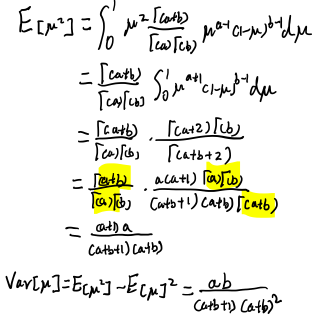 E[μ²] = ∫₀¹ μ² Γ(a+b)/Γ(a)Γ(b) μ^{a-1} (1-μ)^{b-1} dμ
= Γ(a+b)/Γ(a)Γ(b) ∫₀¹ μ^{a+1} (1-μ)^{b-1} dμ
= Γ(a+b)/Γ(a)Γ(b) · Γ(a+2)Γ(b)/Γ(a+b+2)
= Γ(a+b)/Γ(a)Γ(b) · a(a+1) Γ(a)Γ(b)/(a+b+1)(a+b)Γ(a+b)
= (a+1)a/(a+b+1)(a+b)
Var[μ] = E[μ²] - E[μ]² = ab/(a+b+1)(a+b)²